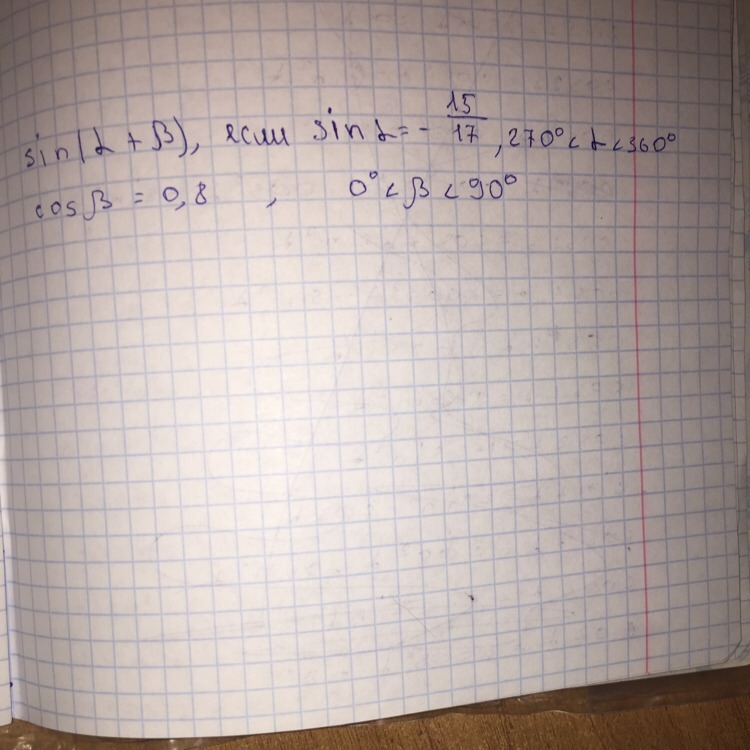 sin(α + β), если sin α = - 15/17, 270° < α < 360°
cos β = 0,8 , 0° < β < 90°